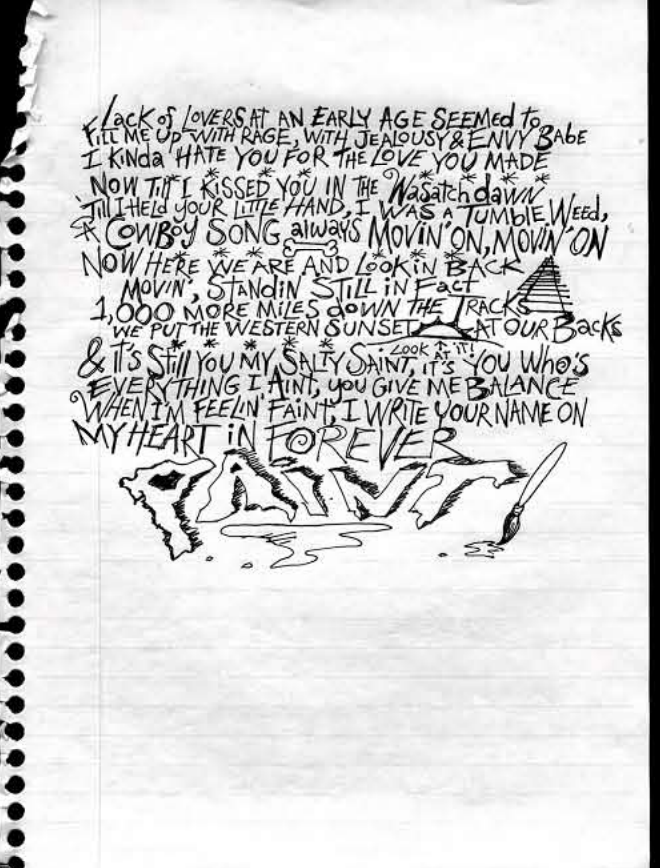 Lack of LOVERS AT AN EARLY AGE SEEMED to
FILL ME UP WITH RAGE, WITH JEALOUSY & ENVY BAbE
I KINda HATE YOU FOR THE LOVE YOU MADE
NOW TILL I KISSED YOU IN THE Wasatch dawn
'TILL I HELd YOUR LITTLE HAND, I WAS A TUMBLE WEEd,
A COWBOY SONG always MOVIN' ON, MOVIN' ON
NOW HERE WE ARE AND LOOKiN BACK
MOVIN', STANdIN STILL iN FacT
1,000 MORE MILES doWN THE TRACKS
WE PUT THE WESTERN SUNSET AT OUR BacKs
LOOK AT IT!
& IT'S STill YOU MY SALTY SAINT, iT'S YOU WHO'S
EVERYTHING I AINT, yOU GIVE ME BALANCE
WHEN I'M FEELIN' FAINT, I WRITE YOUR NAME ON
MY HEART iN FOREVER
PAINT